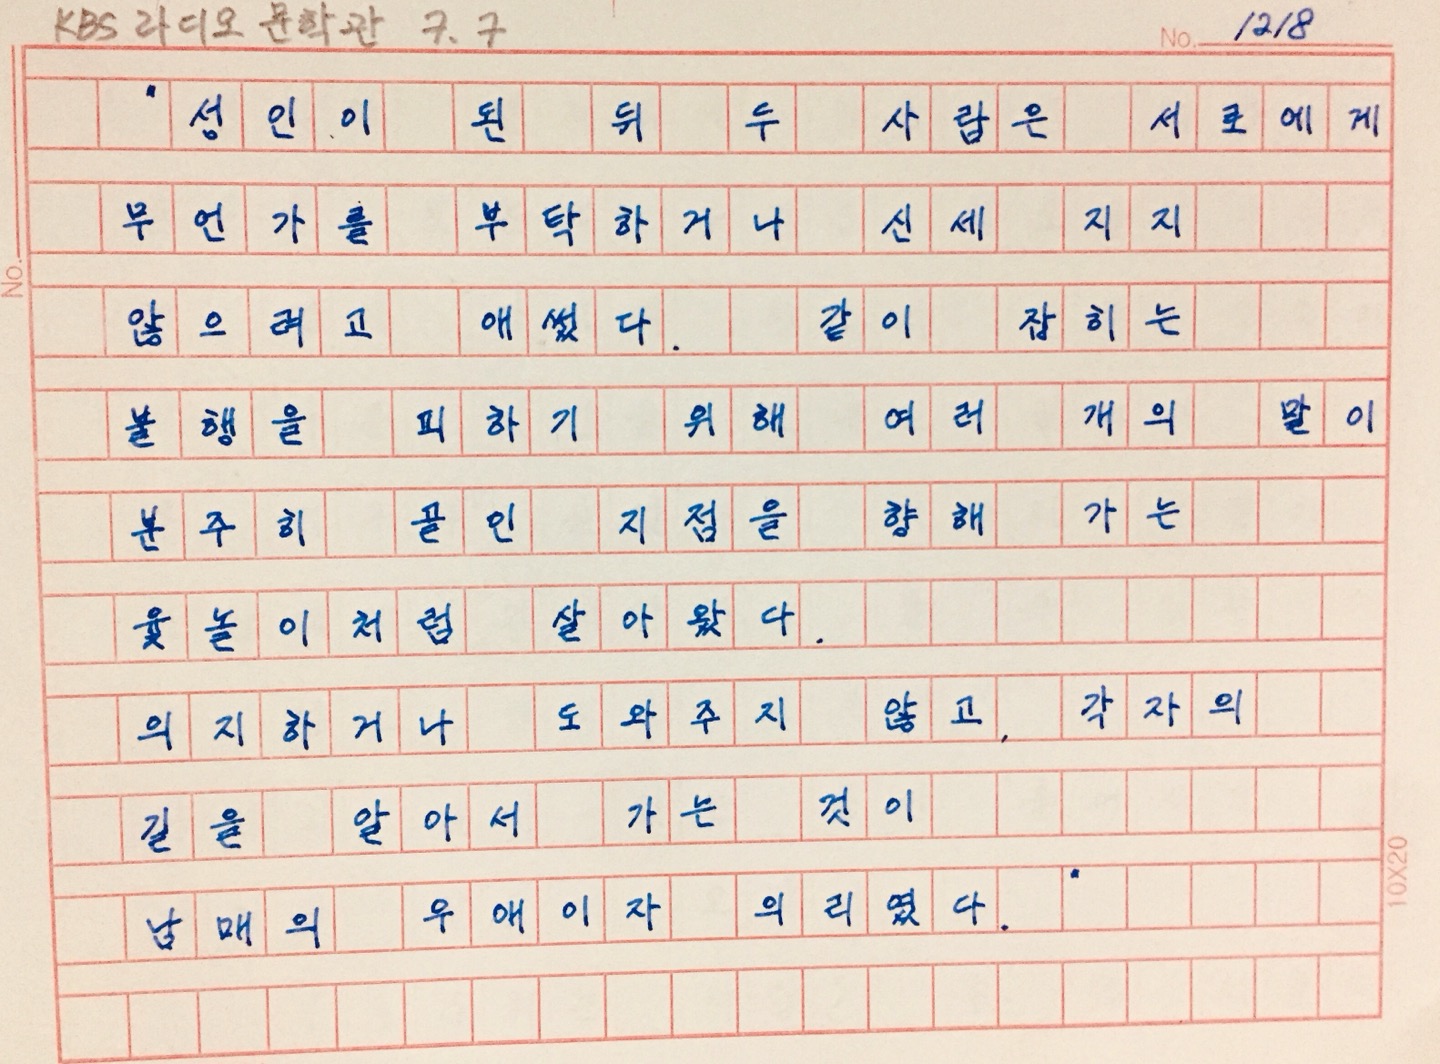 KBS 라디오 문학관 7.7
No. 1218
"성인이 된 뒤 두 사람은 서로에게
무언가를 부탁하거나 신세 지지
않으려고 애썼다. 같이 잡히는
불행을 피하기 위해 여러 개의 말이
분주히 골인 지점을 향해 가는
윷놀이처럼 살아왔다.
의지하거나 도와주지 않고, 각자의
길을 알아서 가는 것이
남매의 우애이자 의리였다."
No.
10X20